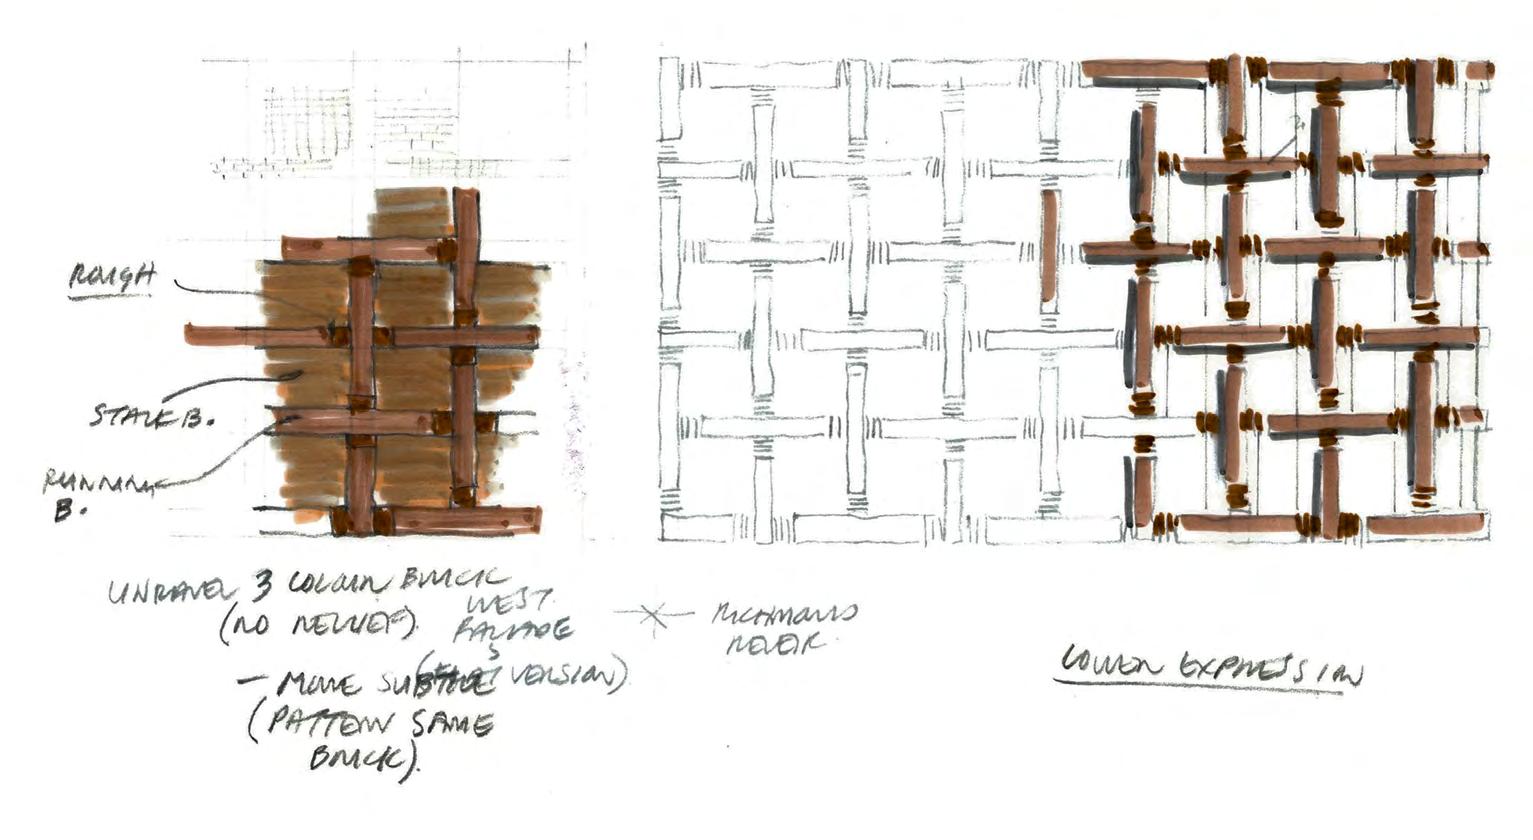 ROUGH
STACK B.
RUNNING
B.
UNRAVEL 3 COLOUR BRICK
(NO RELIEF).
WEST
FACADE
(FLAT VERSION)
— MORE SUBTLE
(PATTERN SAME
BRICK).
RICHMOND
REVEIR
WOVEN EXPRESSION